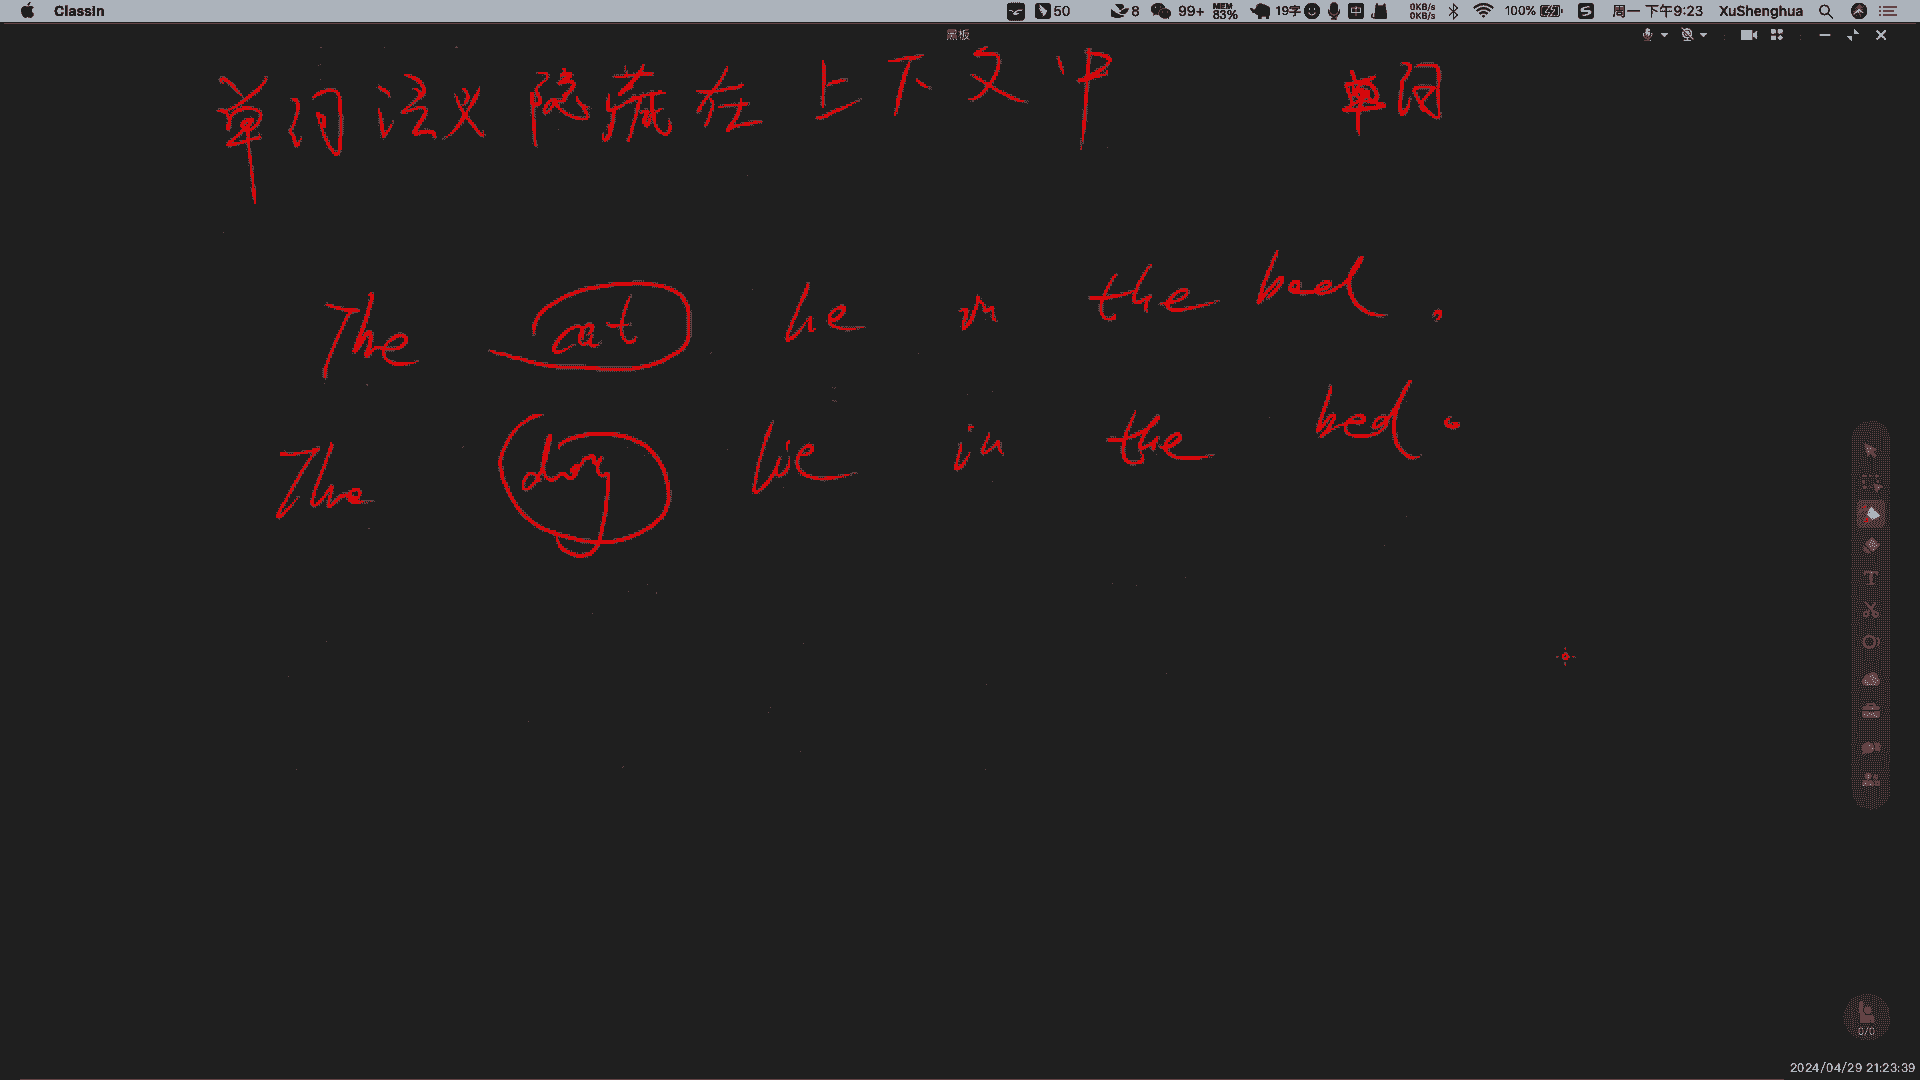 ClassIn 50 8 99+ MEM 83% 19字 中 0KB/s 0KB/s 100% S 周一 下午9:23 XuShenghua
黑板
单词语义隐藏在上下文中 单词
The cat lie in the bed.
The dog lie in the bed.
T
0/0
2024/04/29 21:23:39